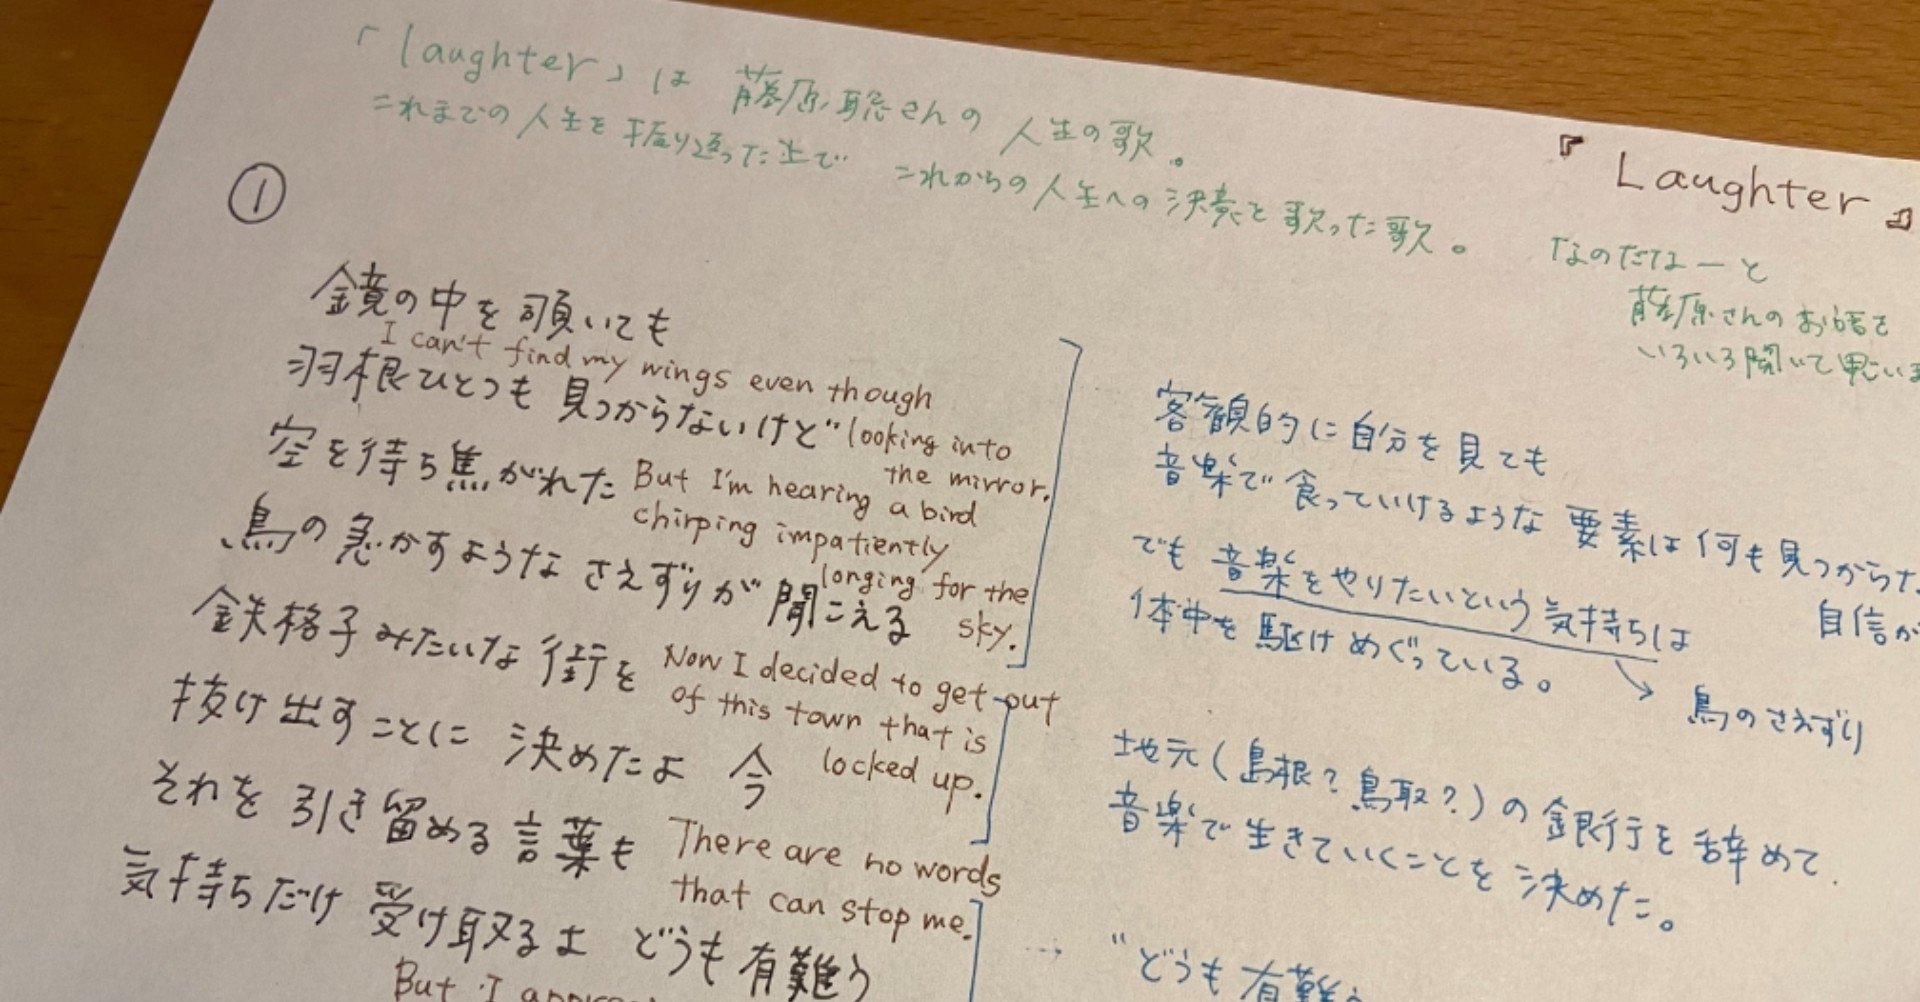 「laughter」は 藤原聡さんの 人生の歌。
これまでの人生を振り返った上で これからの人生への決意を歌った歌。
『Laughter』
なのだなーと
藤原さんのお話を
いろいろ聞いて思いま
①
鏡の中を覗いても
I can't find my wings even though
羽根ひとつも見つからないけど
looking into
the mirror.
空を待ち焦がれた
But I'm hearing a bird
chirping impatiently
鳥の急かすような さえずりが 聞こえる
longing for the
sky.
鉄格子みたいな街を
Now I decided to get out
of this town that is
抜け出すことに 決めたよ 今
locked up.
それを 引き留める 言葉も
There are no words
that can stop me.
気持ちだけ 受け取るよ どうも有難う
But I
客観的に自分を見ても
音楽で食っていけるような要素は何も見つからな
自信が
でも 音楽をやりたいという気持ちは
体中を駆けめぐっている。
鳥のさえずり
地元(島根?鳥取?)の銀行を辞めて
音楽で生きていくことを決めた。
"どうも有難う